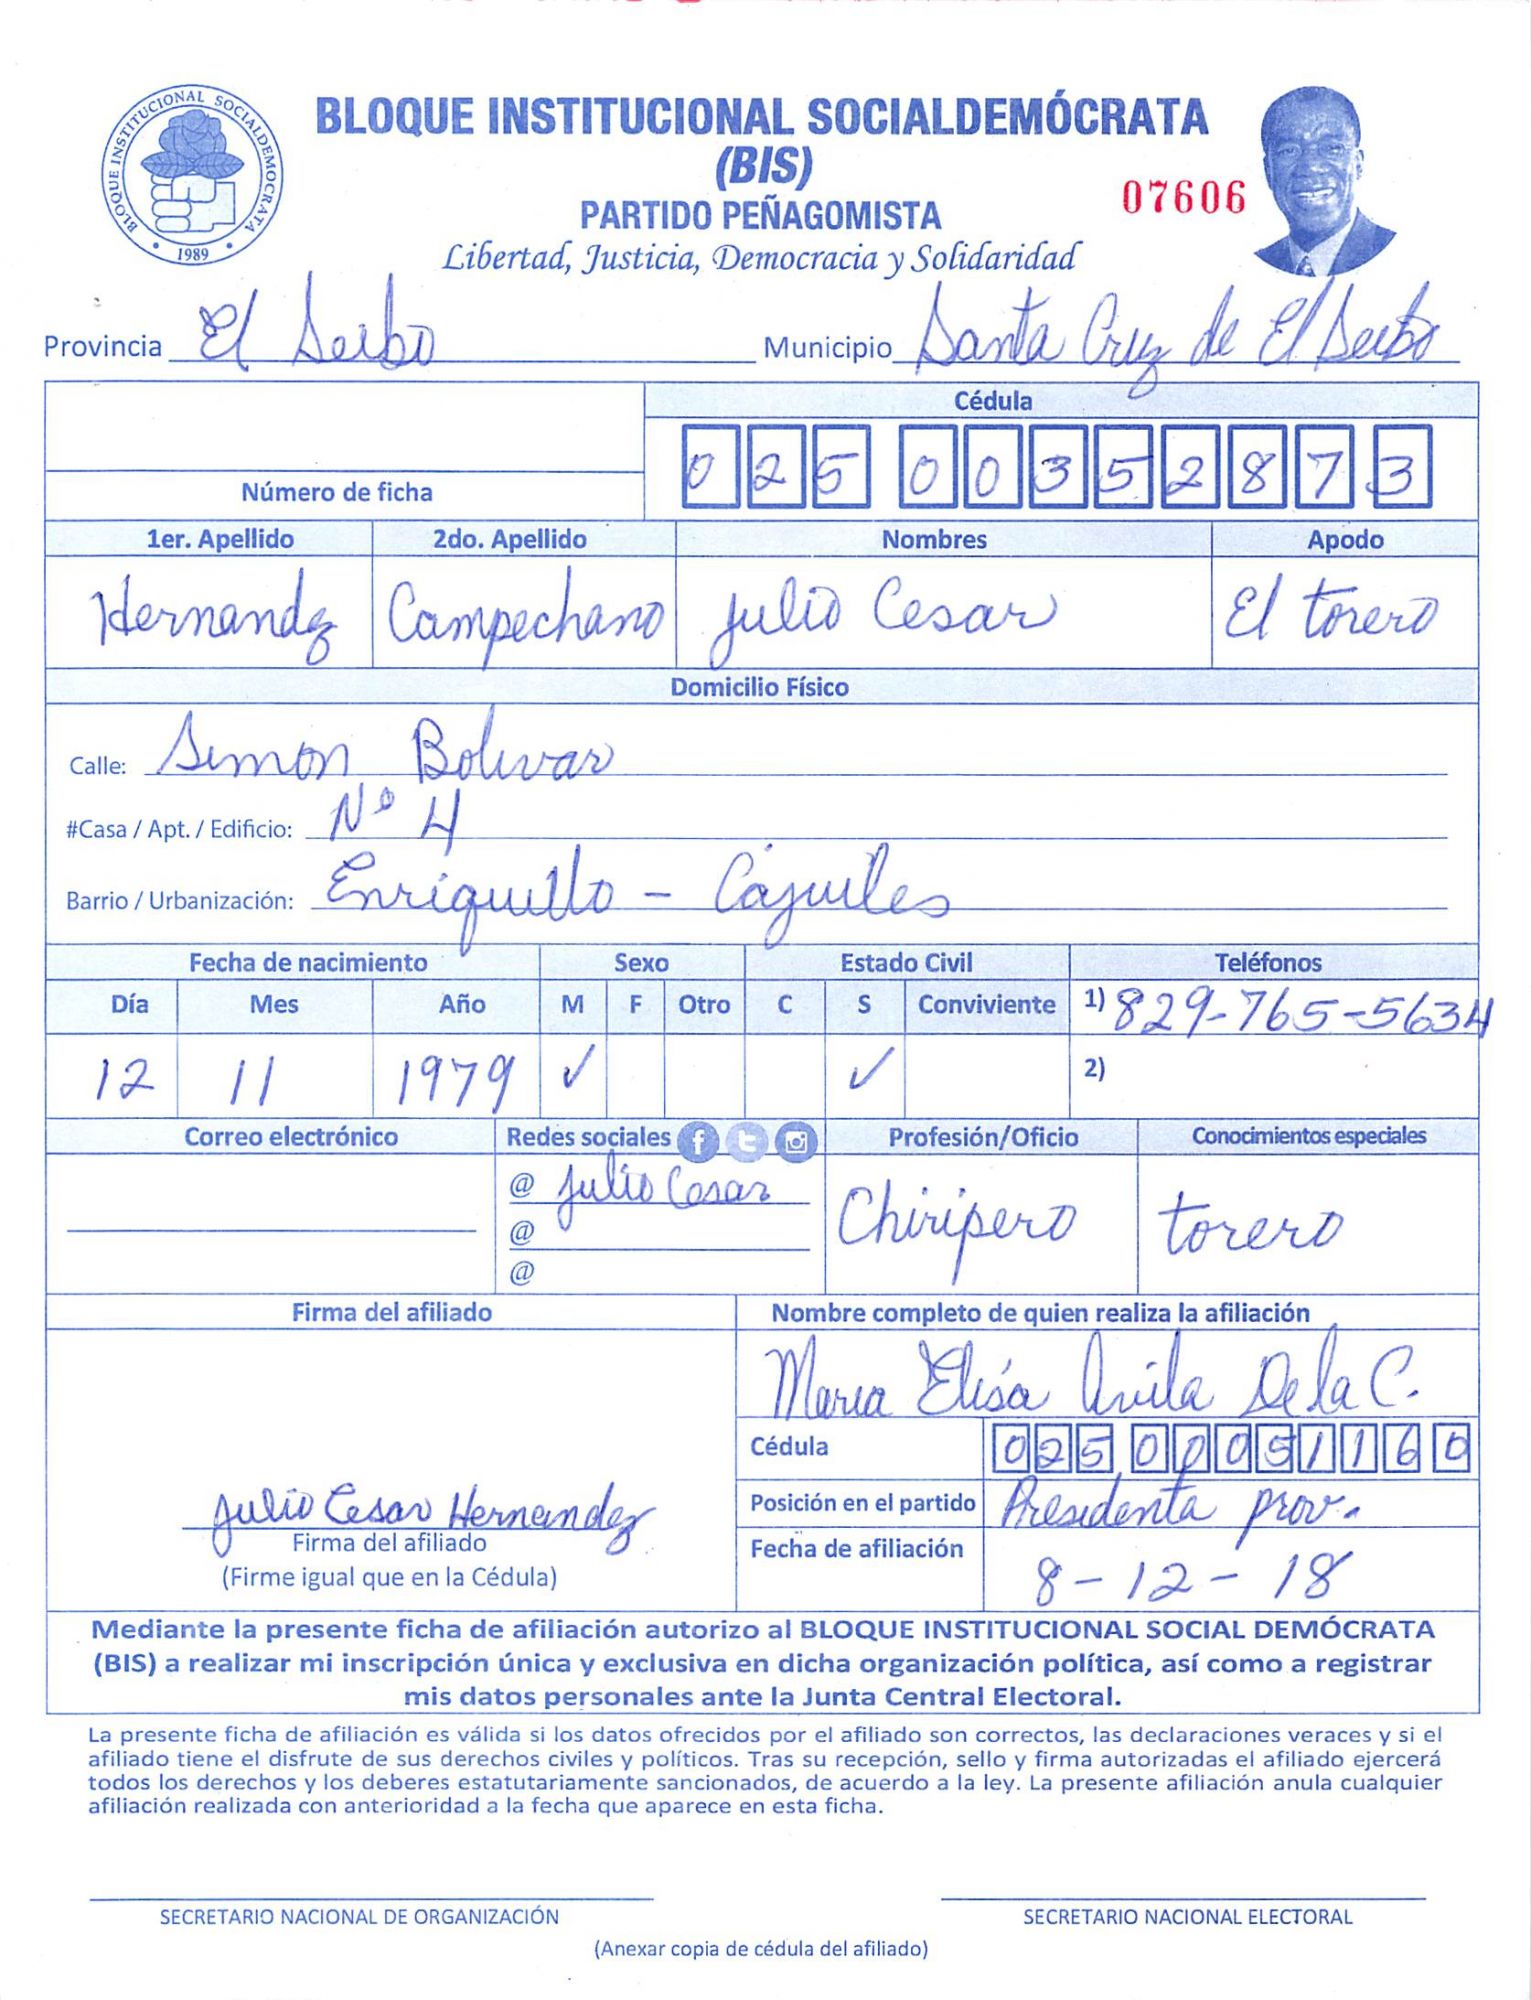 BLOQUE INSTITUCIONAL SOCIALDEMOCRATA
1989
BLOQUE INSTITUCIONAL SOCIALDEMÓCRATA
(BIS)
PARTIDO PEÑAGOMISTA
07606
Libertad, Justicia, Democracia y Solidaridad
Provincia El Seibo Municipio Santa Cruz de El Seibo
Cédula
025 0035287 3
Número de ficha
1er. Apellido 2do. Apellido Nombres Apodo
Hernandez Campechano Julio Cesar El torero
Domicilio Físico
Calle: Simon Bolivar
#Casa / Apt. / Edificio: Nº 4
Barrio / Urbanización: Enriquillo - Cajuiles
Fecha de nacimiento Sexo Estado Civil Teléfonos
Día Mes Año M F Otro C S Conviviente 1) 829-765-5634
12 11 1979 ✓ ✓ 2)
Correo electrónico Redes sociales Profesión/Oficio Conocimientos especiales
@ Julio Cesar
@
@
Chiripero torero
Firma del afiliado Nombre completo de quien realiza la afiliación
Maria Elisa Avila De la C.
Cédula 025 0005116 0
Posición en el partido Presidenta prov.
Fecha de afiliación 8-12-18
Julio Cesar Hernandez
Firma del afiliado
(Firme igual que en la Cédula)
Mediante la presente ficha de afiliación autorizo al BLOQUE INSTITUCIONAL SOCIAL DEMÓCRATA
(BIS) a realizar mi inscripción única y exclusiva en dicha organización política, así como a registrar
mis datos personales ante la Junta Central Electoral.
La presente ficha de afiliación es válida si los datos ofrecidos por el afiliado son correctos, las declaraciones veraces y si el
afiliado tiene el disfrute de sus derechos civiles y políticos. Tras su recepción, sello y firma autorizadas el afiliado ejercerá
todos los derechos y los deberes estatutariamente sancionados, de acuerdo a la ley. La presente afiliación anula cualquier
afiliación realizada con anterioridad a la fecha que aparece en esta ficha.
SECRETARIO NACIONAL DE ORGANIZACIÓN SECRETARIO NACIONAL ELECTORAL
(Anexar copia de cédula del afiliado)